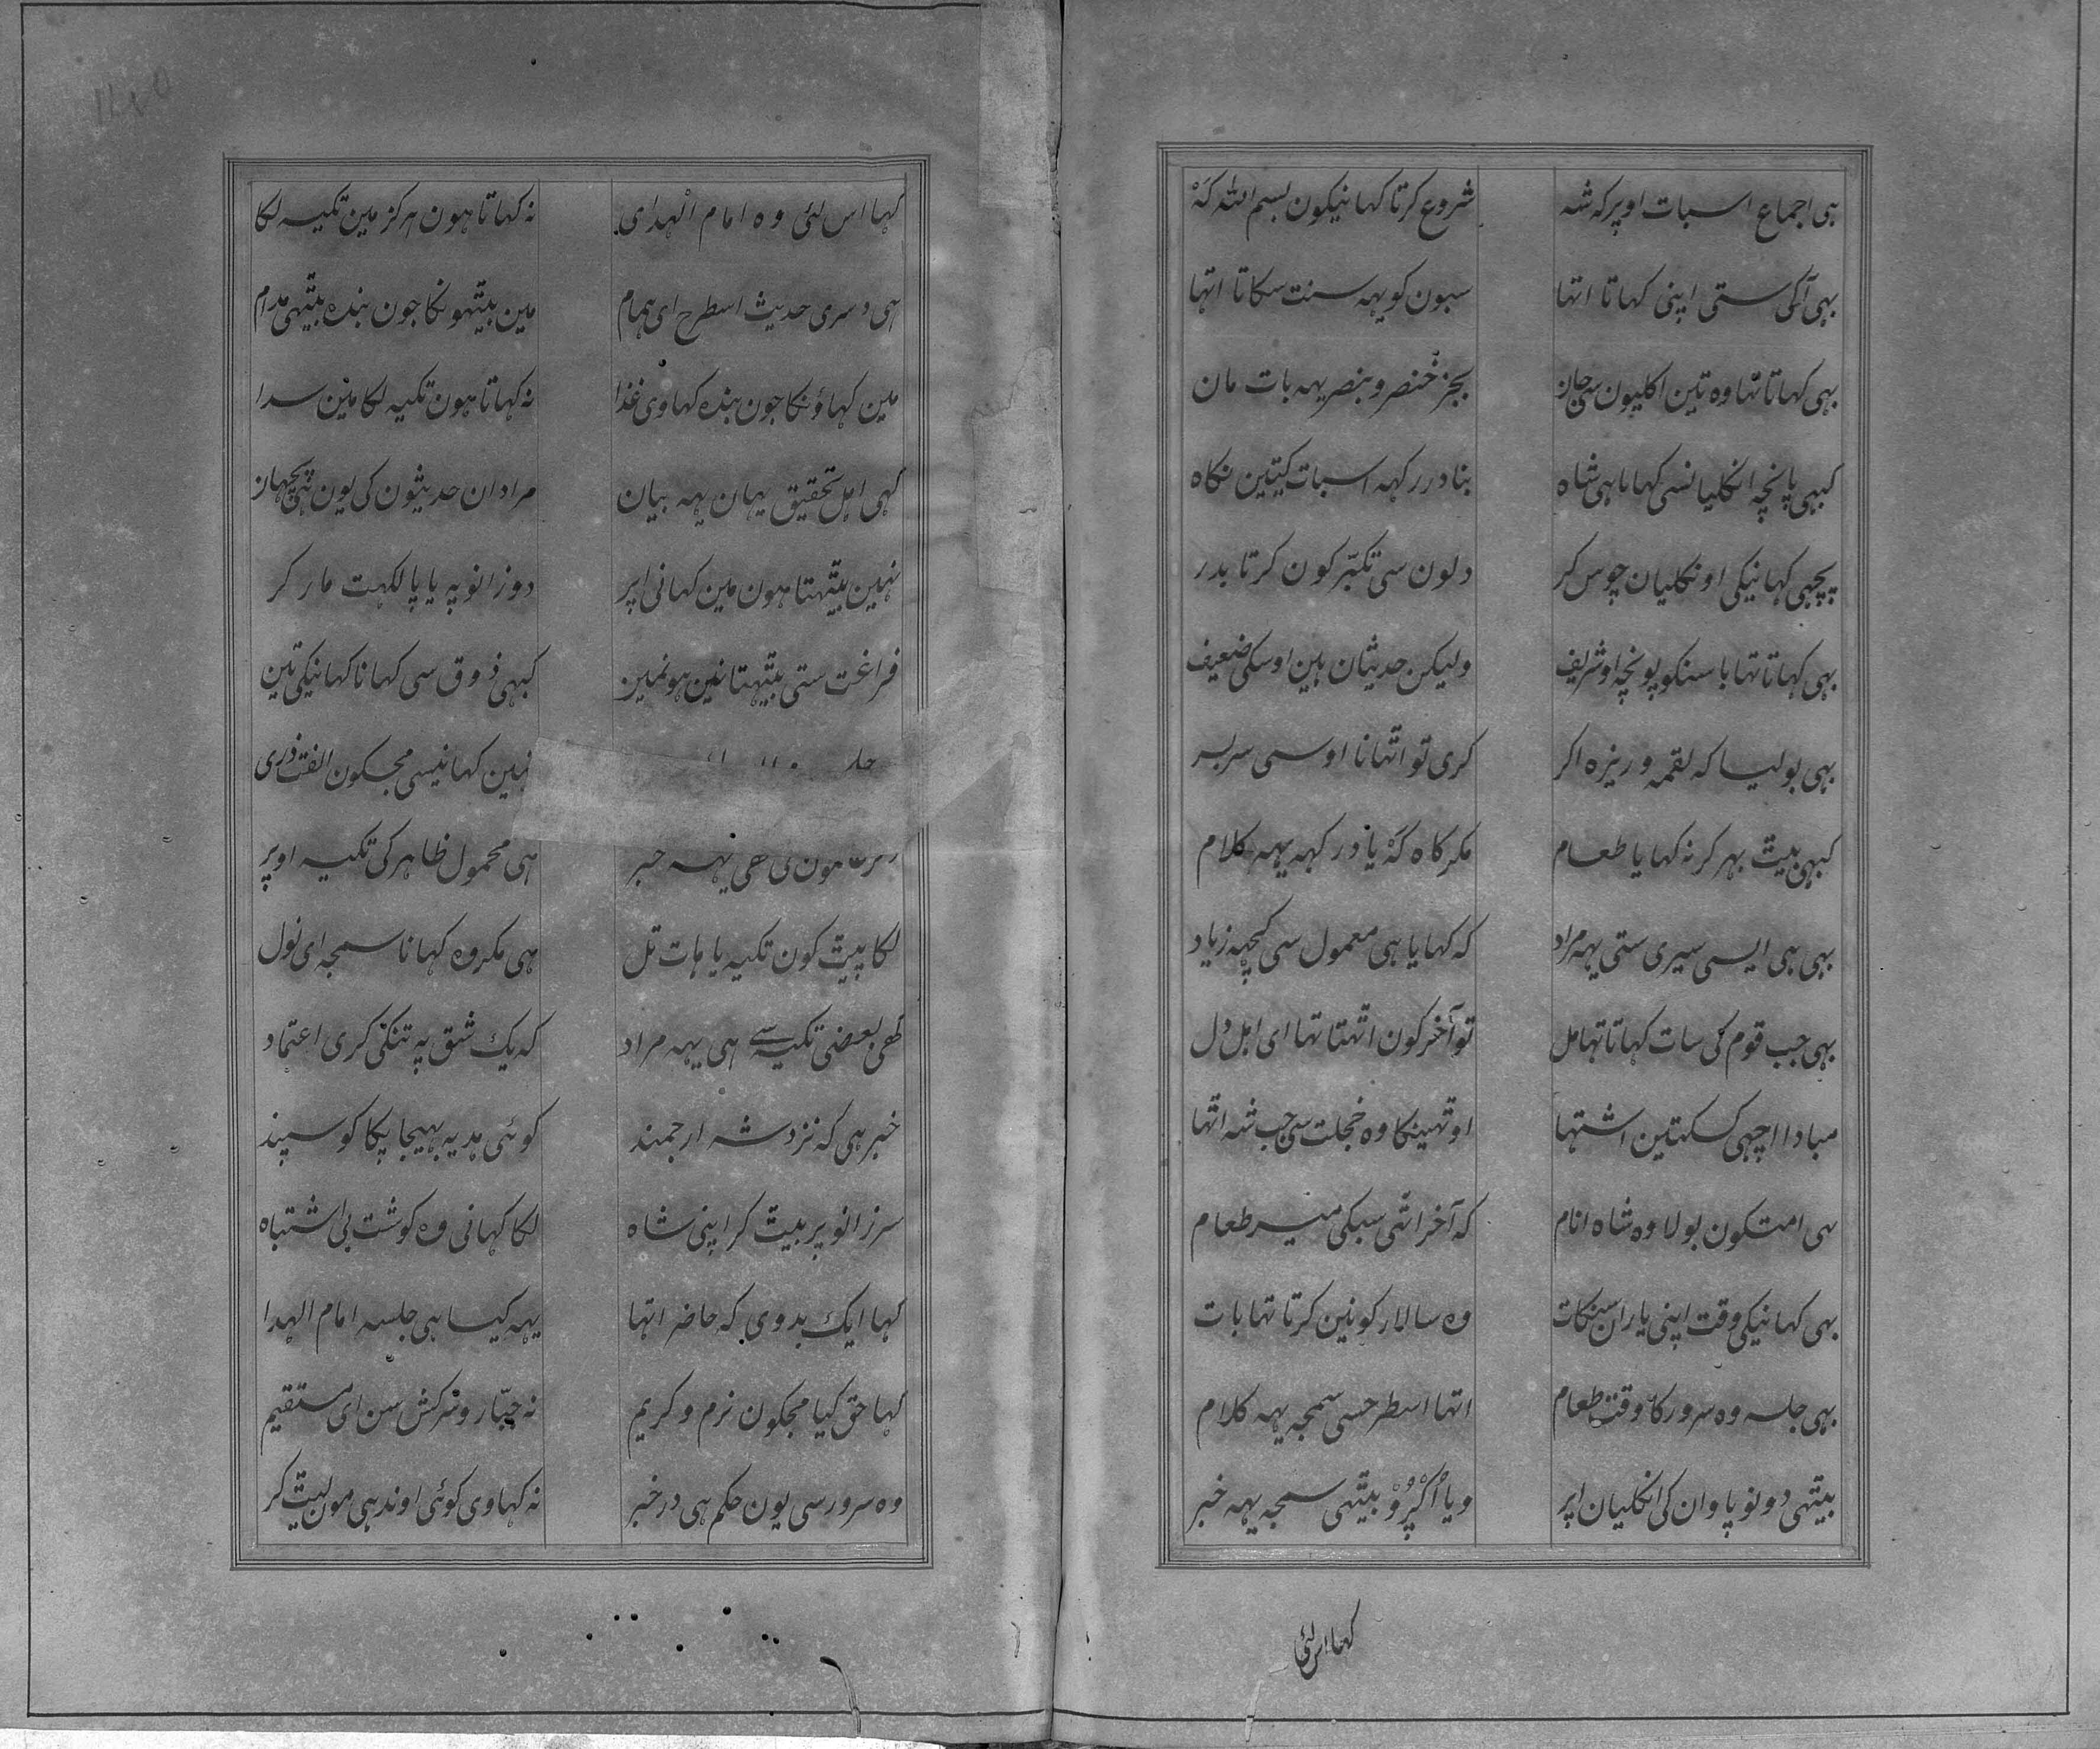 ہی اجماع اسبات اوپر کہ شہ شروع کرتا کہانیکون بسم اللہ کہ
بہی آگی ستی اپنی کہاتا اتہا سبون کو یہہ سنت سکاتا اتہا
بہی کہاتا تہا وہ تین انکلیون سی جان بجز خنصر و بنصر یہہ بات مان
کبہی پانچہ انکلیانسی کہایا ہی شاہ بنا در رکہہ اسبات کیتین نکاہ
پچہی کہانیکی اونکلیان چوس کر دلون سی تکبّر کون کرتا بدر
بہی کہاتا تہا باسنکو پونچہ او شریف ولیکن حدیثان ہین اوسکی ضعیف
بہی بولیا کہ لقمہ و ریزہ اکر کری تو اتہانا اوسی سربسر
کبہی پیٹ بہر کر نہ کہایا طعام مکر کاہ کہ یاد رکہہ یہہ کلام
بہی ہی ایسی سیری ستی یہہ مراد کہ کہایا ہی معمول سی کچہہ زیاد
بہی جب قوم کی سات کہاتا تہا مل تو آخر کون اتہتا تہا ای اہل دل
مبادا اچہی کسکتین اشتہا اوتہینکا وہ خجلت سی جب شہ اتہا
ہی امتکون بولا وہ شاہ انام کہ آخر اتہی سبکی میر طعام
بہی کہانیکی وقت اپنی یاران سنکات وہ سالار کونین کرتا تہا بات
بہی جلسہ وہ سرور کا وقت طعام اتہا اسطرحسی سمجہ یہہ کلام
بیتہی دونو پاوان کی انکلیان اپر ویا اکڑو بیتہی سمجہ یہہ خبر
کہا اس لئی
کہا اس لئی وہ امام الہدای نہ کہاتا ہون ہرکز مین تکیہ لکا
ہی دسری حدیث اسطرح ای ہمام مین بیتہونکا جون بندہ بیتہی مدام
مین کہاؤنکا جون بندہ کہاوی غذا نہ کہاتا ہون تکیہ لکا مین سدا
کہی اہل تحقیق یہان یہہ بیان مراد ان حدیثون کی یون پہچان
نہین بیتہتا ہون مین کہانی اپر دوزانو پہ یا پالکہت مار کر
فراغت ستی بیتہتا نین ہو نمین کبہی ذوق سی کہانا کہانیکی تین
نہین کہانیسی مجکون الفت ذری
ہی محمول ظاہر کی تکیہ اوپر
لکا پیٹ کون تکیہ یا ہات تل ہی مکروہ کہانا سمجہ ای نول
کہی بعضی تکیہ سے ہی یہہ مراد کہ یک شق پہ تنکی کری اعتماد
خبر ہی کہ نزد شہ ارجمند کوئی ہدیہ بہیجا پکا کوسپند
سر زانو پر بیٹ کر اپنی شاہ لکا کہانی وہ کوشت بی اشتباہ
کہا ایک بدوی کہ حاضر اتہا یہہ کیسا ہی جلسہ امام الہدا
کہا حق کیا مجکون نرم و کریم نہ جبّار و سرکش سن ای مستقیم
وہ سرور سی یون حکم ہی در خبر نہ کہاوی کوئی اوندہی مون لیت کر